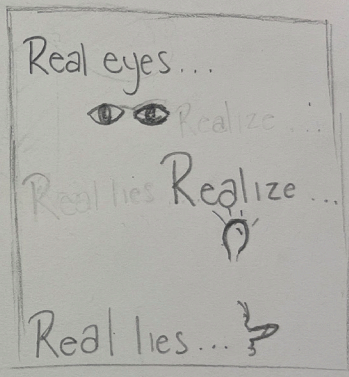 Real eyes...
Realize...
Real lies Realize...
Real lies...